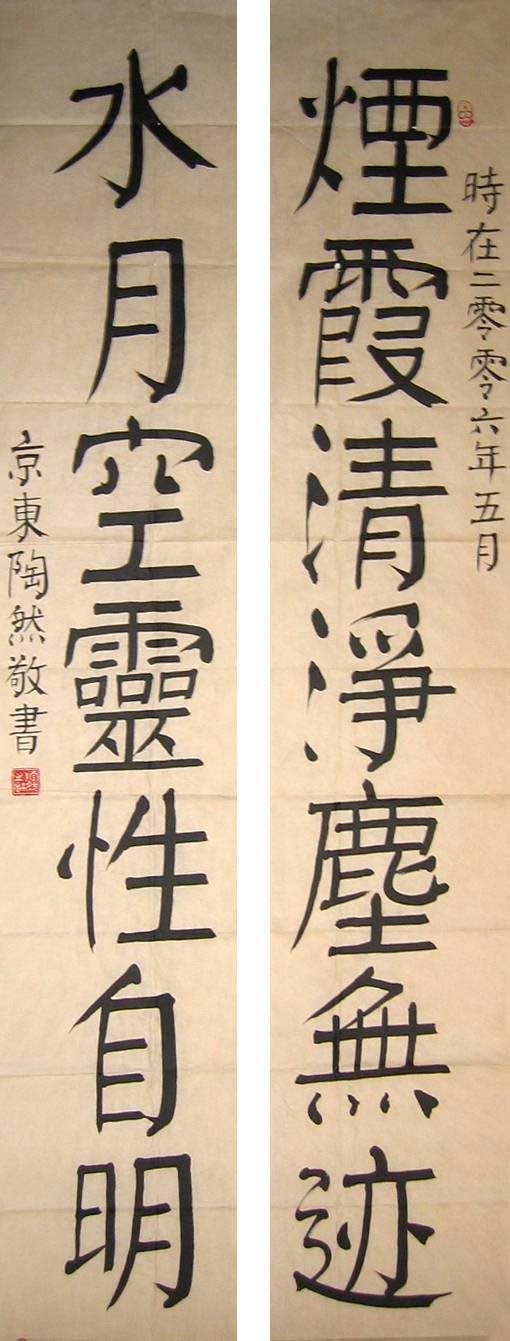 時在二零零六年五月
煙霞清淨塵無迹
水月空靈性自明
京東陶然敬書